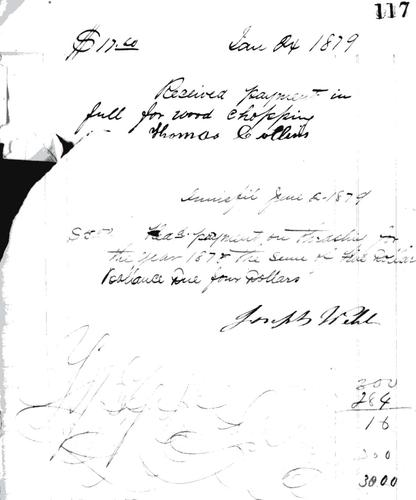 117
$17.50 Jan 04 1879
Received payment in
full for wood chopping
Thomas Collins
Innisfil June 2-1879
payment on thrashing for
the year 187 the sum of five Dollars
Ballance Due four Dollars
Joseph Webb
300
284
16
300
3000